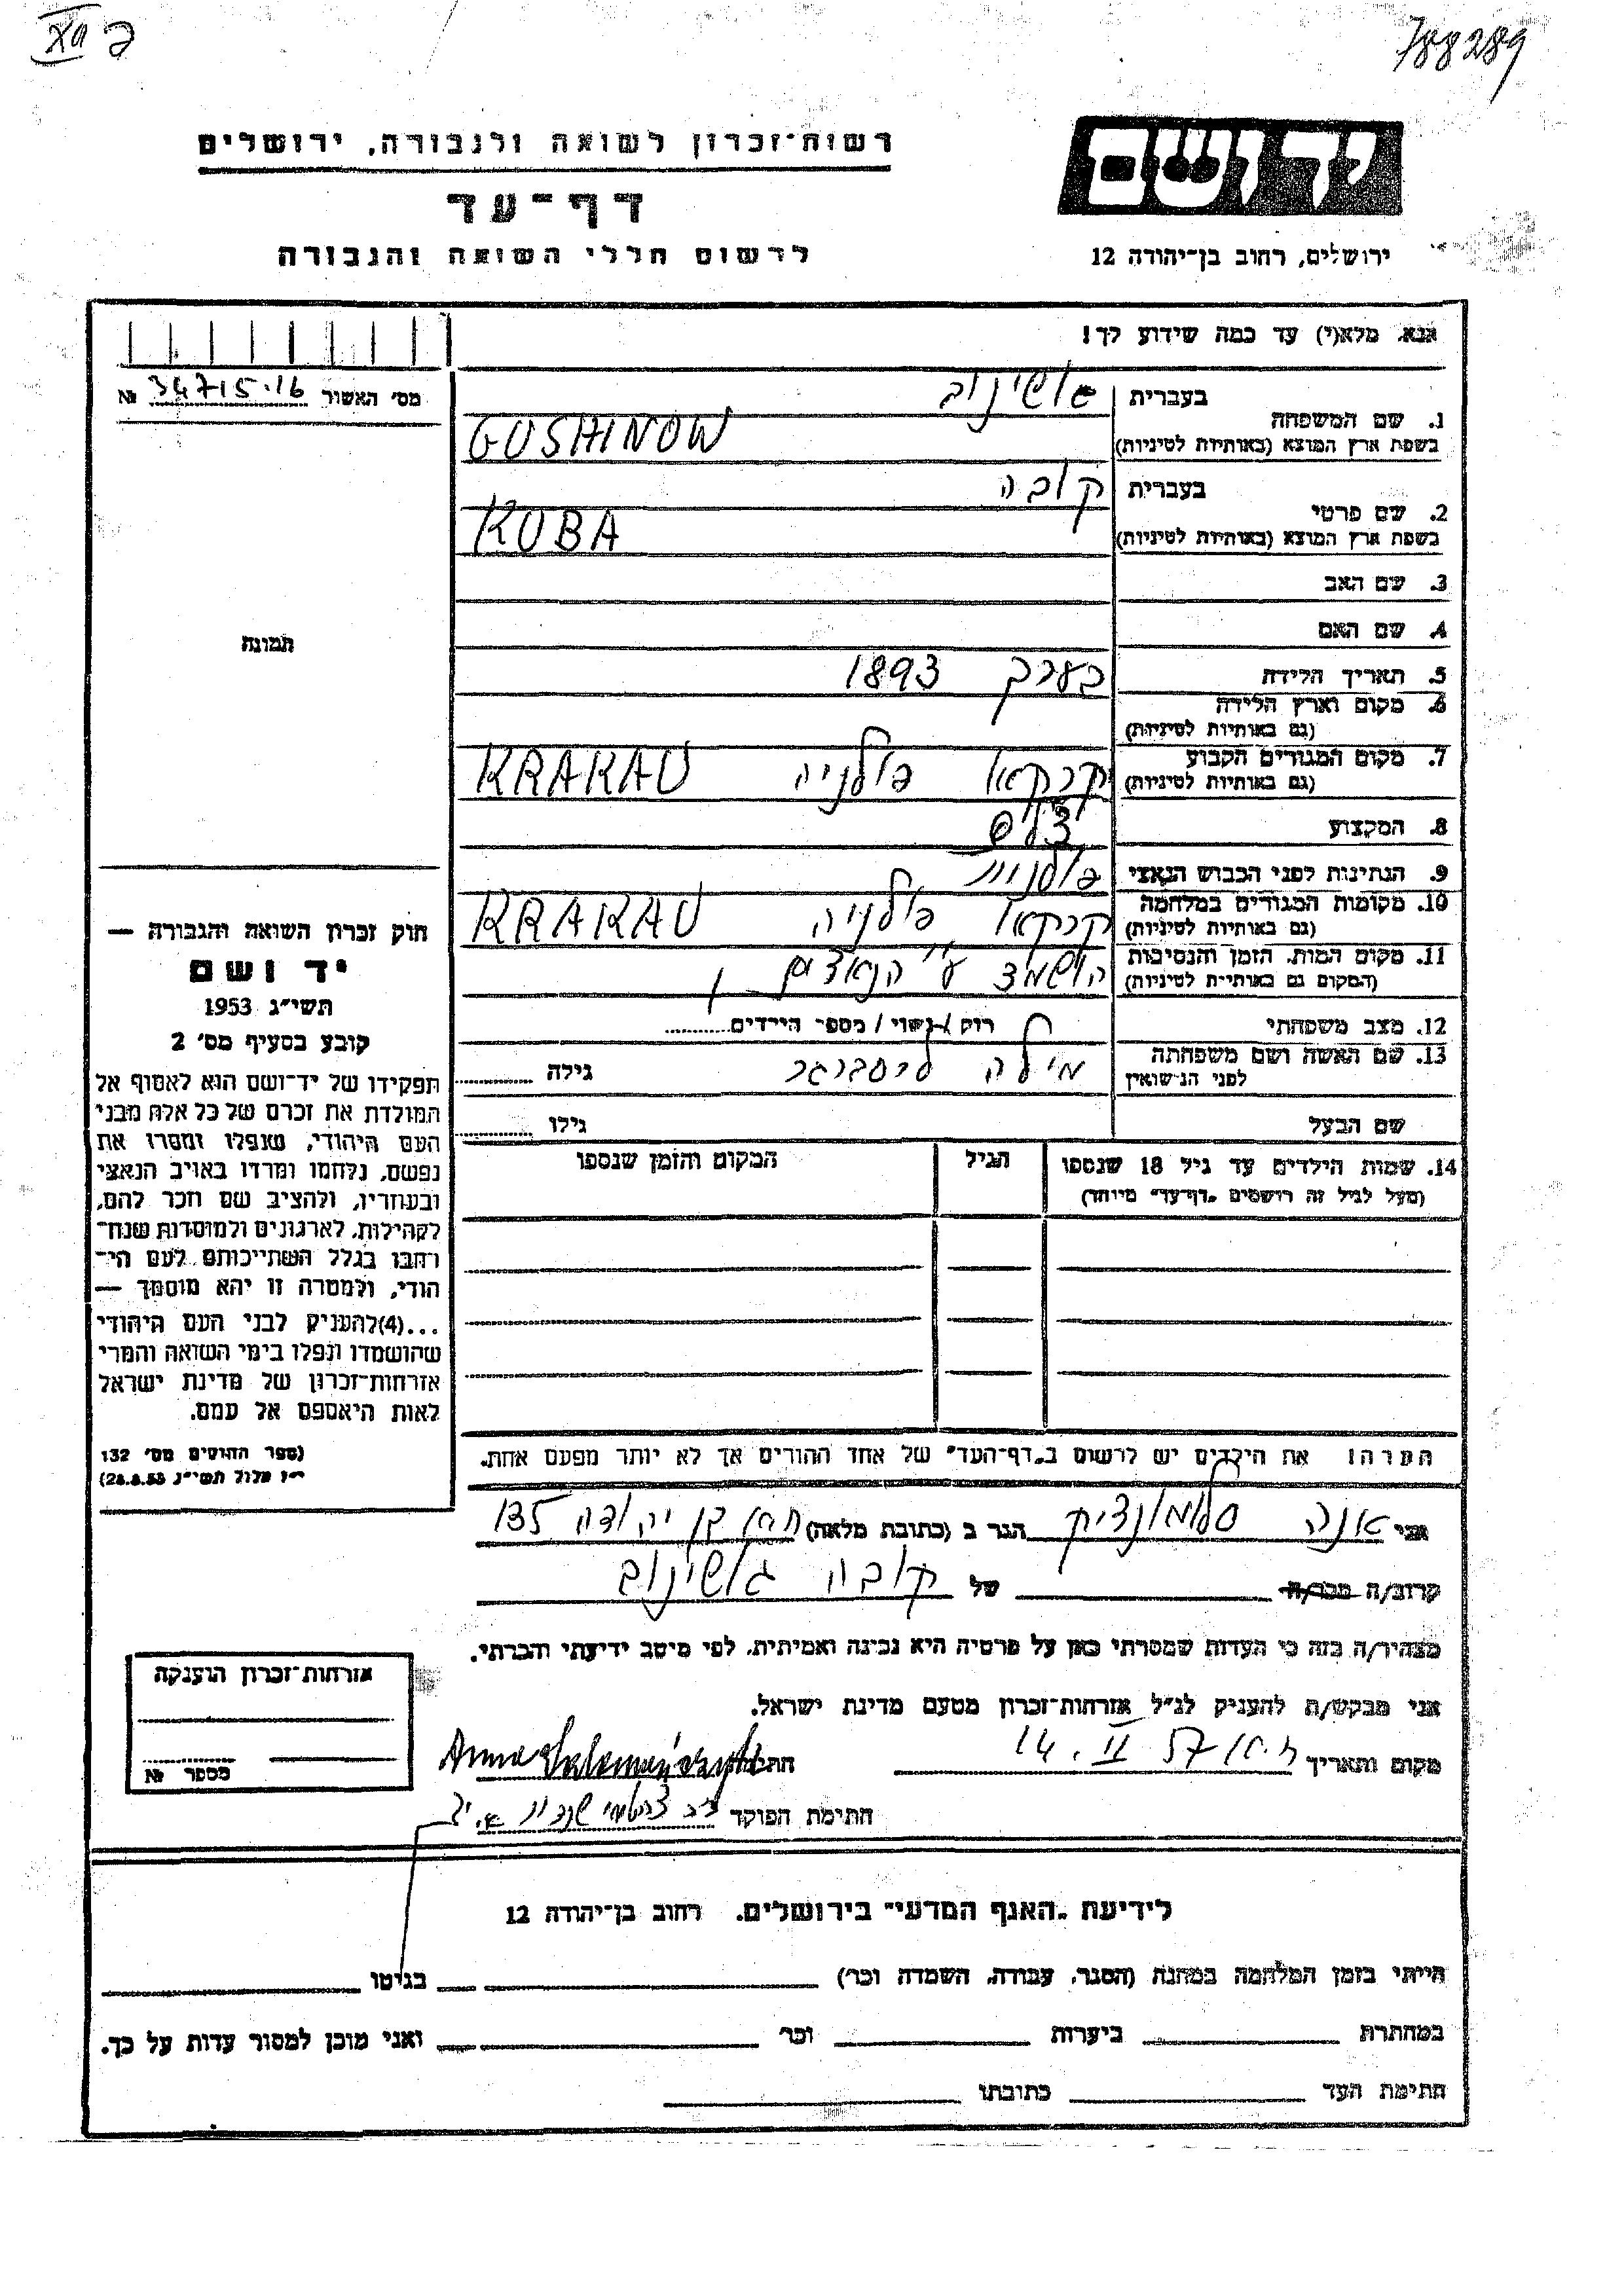 788289
יד ושם
רשות־זכרון לשואה ולגבורה, ירושלים
דף־עד
לרשום חללי השואה והגבורה
ירושלים, רחוב בן־יהודה 12
אנא, מלא(י) עד כמה שידוע לך!
מס׳ האשור 34715.16 №
1. שם המשפחה
בעברית גושינוב
בשפת ארץ המוצא (באותיות לטיניות) GUSHINOW
2. שם פרטי
בעברית קובה
בשפת ארץ המוצא (באותיות לטיניות) KUBA
3. שם האב
4. שם האם
תמונה
5. תאריך הלידה בערך 1893
6. מקום וארץ הלידה
(גם באותיות לטיניות)
7. מקום המגורים הקבוע
(גם באותיות לטיניות) קרקאו פולניה KRAKAU
8. המקצוע צלם
9. הנתינות לפני הכבוש הנאצי פולנית
10. מקומות המגורים במלחמה
(גם באותיות לטיניות) קרקאו פולניה KRAKAU
11. מקום המות, הזמן והנסיבות
(המקום גם באותיות לטיניות) הושמד ע״י הנאצים
12. מצב משפחתי רוק / נשוי / מספר הילדים
13. שם האשה ושם משפחתה
לפני הנישואין מילה גילה
שם הבעל גילו
14. שמות הילדים עד גיל 18 שנספו
(מעל לגיל זה רושמים „דף־עד״ מיוחד)
הגיל
המקום והזמן שנספו
הערה: את הילדים יש לרשום ב„דף־העד״ של אחד ההורים אך לא יותר מפעם אחת.
חוק זכרון השואה והגבורה —
יד ושם
תשי״ג 1953
קובע בסעיף מס׳ 2
תפקידו של יד־ושם הוא לאסוף אל
המולדת את זכרם של כל אלה מבני
העם היהודי, שנפלו ומסרו את
נפשם, נלחמו ומרדו באויב הנאצי
ובעוזריו, ולהציב שם וזכר להם,
לקהילות, לארגונים ולמוסדות שנח־
רבו בגלל השתייכותם לעם הי־
הודי, ולמטרה זו יהא מוסמך —
...(4)להעניק לבני העם היהודי
שהושמדו ונפלו בימי השואה והמרי
אזרחות־זכרון של מדינת ישראל
לאות היאספם אל עמם.
(ספר החוקים מס׳ 132
י״ז אלול תשי״ג 28.8.53)
אני אנה סלומונציק הגר ב (כתובת מלאה) בן יהודה 135
קרוב/ה מכר/ה של קובה גושינוב
מצהיר/ה בזה כי העדות שמסרתי כאן על פרטיה היא נכונה ואמיתית, לפי מיטב ידיעתי והכרתי.
אני מבקש/ת להעניק לנ״ל אזרחות־זכרון מטעם מדינת ישראל.
מקום ותאריך 14. II 57 חתימה Anna
חתימת הפוקד
אזרחות־זכרון הוענקה
מספר №
לידיעת „האגף המדעי״ בירושלים, רחוב בן־יהודה 12
הייתי בזמן המלחמה במחנה (הסגר, עבודה, השמדה וכו׳) בגיטו
במחתרת ביערות וכו׳ ואני מוכן למסור עדות על כך.
חתימת העד כתובתו